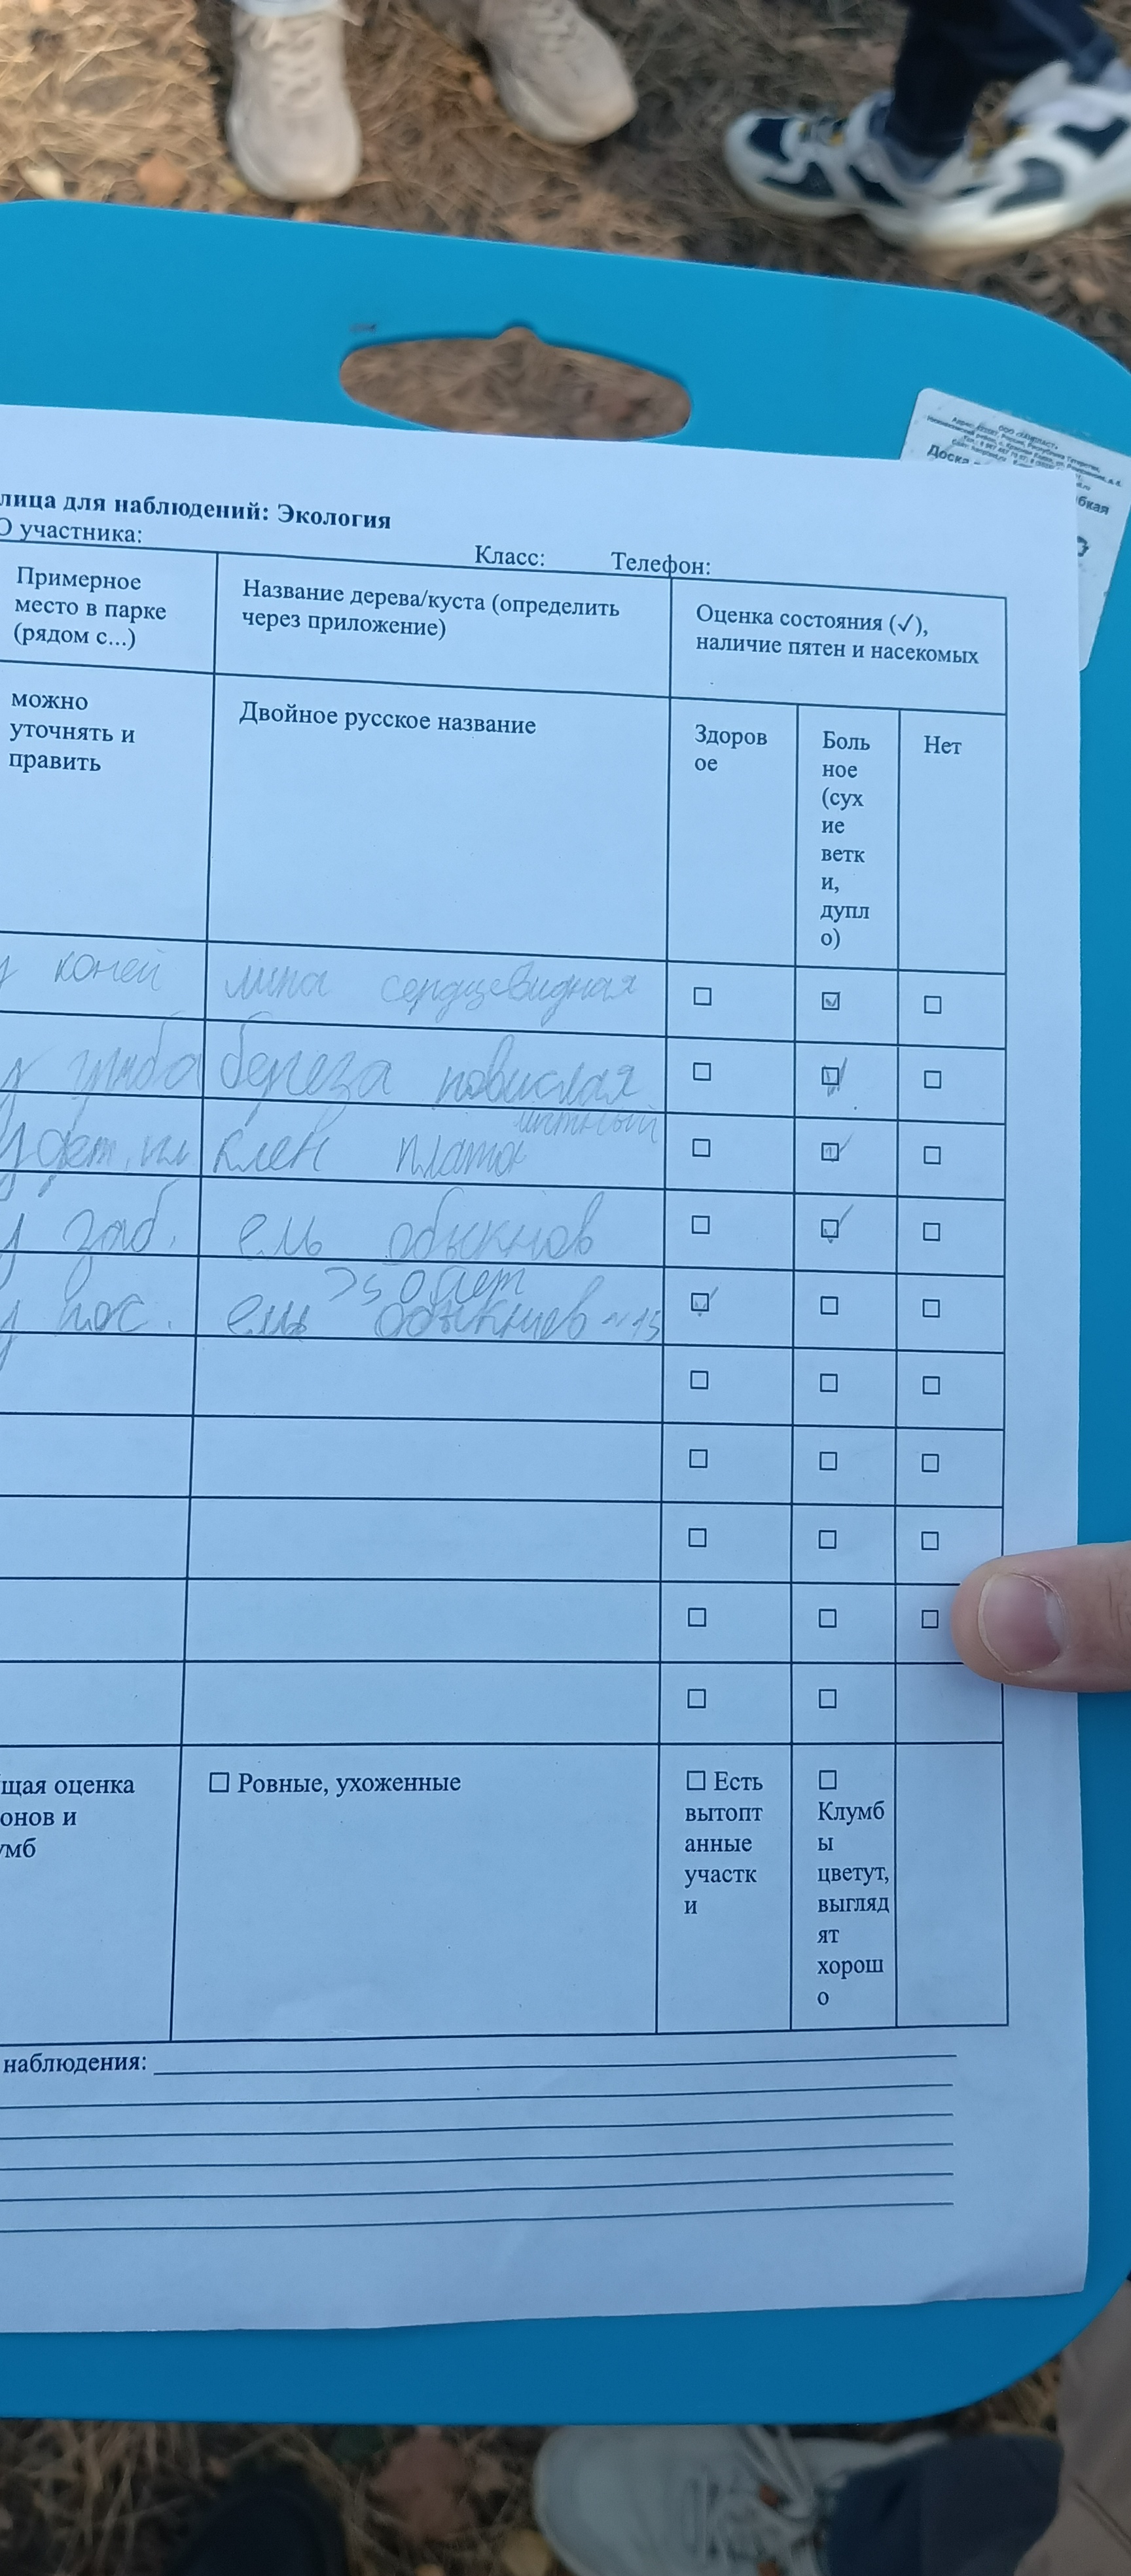 ООО «ЗАНПЛАСТ»
Доска
бкая
лица для наблюдений: Экология
О участника:
Класс: Телефон:
Примерное
место в парке
(рядом с...)
Название дерева/куста (определить
через приложение)
Оценка состояния (✓),
наличие пятен и насекомых
можно
уточнять и
править
Двойное русское название
Здоров
ое
Боль
ное
(сух
ие
ветк
и,
дупл
о)
Нет
у коней липа сердцевидная ☐ ☑ ☐
у гриба береза повислая ☐ ☑ ☐
у дет. пл клен платановидный ☐ ☑ ☐
у заб. ель обыкнов ☐ ☑ ☐
>50 лет
у пос. ель обыкнов ~15 ☑ ☐ ☐
☐ ☐ ☐
☐ ☐ ☐
☐ ☐ ☐
☐ ☐ ☐
☐ ☐
щая оценка
онов и
умб
☐ Ровные, ухоженные
☐ Есть
вытопт
анные
участк
и
☐
Клумб
ы
цветут,
выгляд
ят
хорош
о
наблюдения: